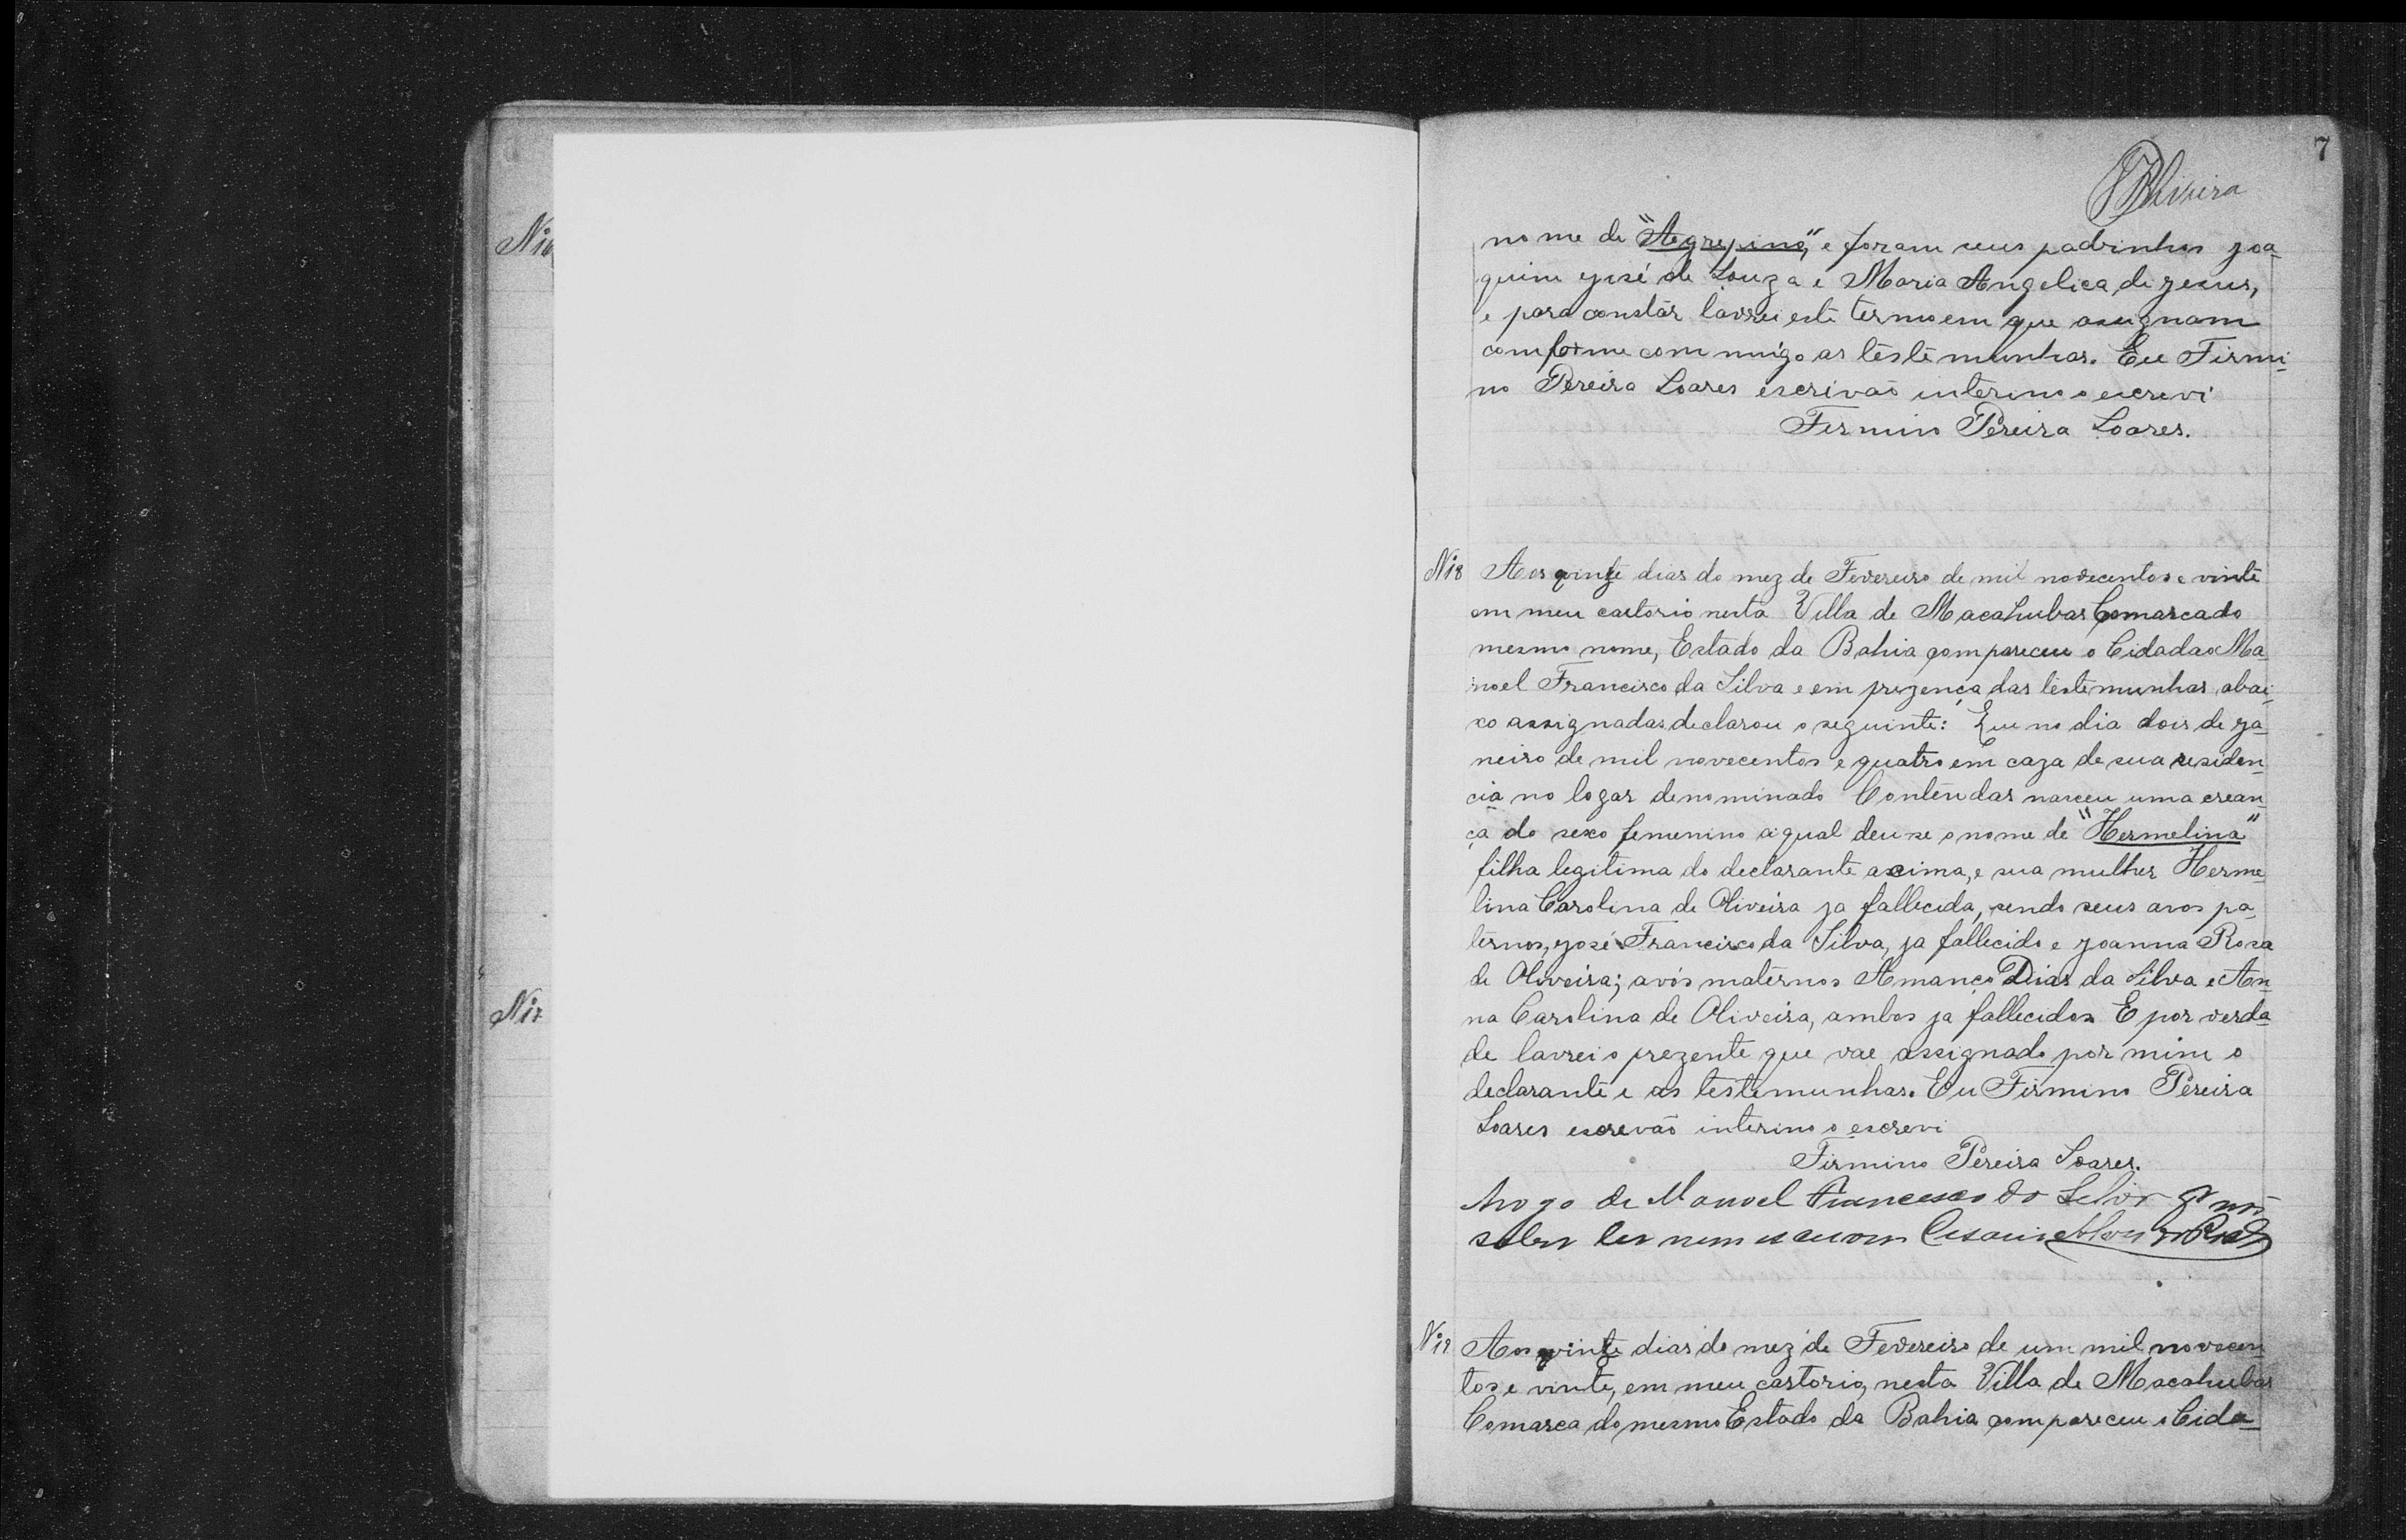 7
Oliveira
Nº 16
nome de "Agrepino", e foram seus padrinhos Joa-
quim José de Souza e Maria Angelica de Jesus,
e para constar lavrei este termo em que assignam
comforme commigo as testemunhas. Eu Firmi-
no Pereira Soares escrivaõ interino o escrevi
Firmino Pereira Soares.
Nº 18 Aos quinze dias do mez de Fevereiro de mil novecentos e vinte
em meu cartorio nesta Villa de Macahubas Comarca do
mesmo nome, Estado da Bahia compareceu o Cidadao Ma-
noel Francisco da Silva e em prezença das testemunhas abai-
xo assignadas declarou o seguinte: Que no dia dois de Ja-
neiro de mil novecentos e quatro em caza de sua residen-
cia no logar denominado Contendas nasceu uma crean-
ça do sexo femenino a qual deu-se o nome de "Hermelina"
filha legitima do declarante acima, e sua mulher Herme-
lina Carolina de Oliveira ja fallecida, sendo seus avos pa-
ternos, José Francisco da Silva, ja fallecido e Joanna Rosa
de Oliveira; avós maternos Amanço Dias da Silva e An-
na Carolina de Oliveira, ambos ja fallecidos E por verda-
de lavrei o prezente que vae assignado por mim o
declarante e as testemunhas. Eu Firmino Pereira
Soares escrevaõ interino o escrevi
Firmino Pereira Soares.
Arogo de Manoel Francisco da Silva
saber ler nem escrever Cesario Alves
Nº 17
Nº 19 Aos quinze dias do mez de Fevereiro de um mil novecen-
tos e vinte, em meu cartorio, nesta Villa de Macahubas
Comarca do mesmo Estado da Bahia compareceu o Cida-